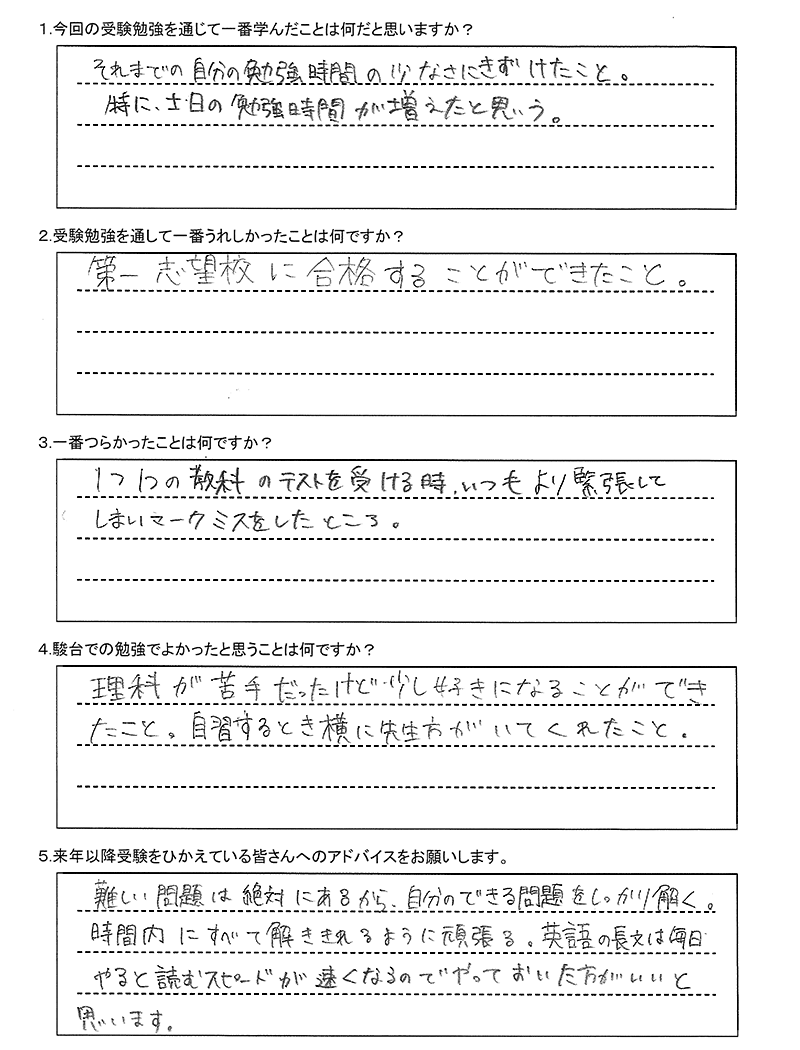 1.今回の受験勉強を通じて一番学んだことは何だと思いますか？
それまでの自分の勉強時間の少なさにきずけたこと。
特に、土日の勉強時間が増えたと思う。
2.受験勉強を通して一番うれしかったことは何ですか？
第一志望校に合格することができたこと。
3.一番つらかったことは何ですか？
1つ1つの教科のテストを受ける時、いつもより緊張して
しまいマークミスをしたところ。
4.駿台での勉強でよかったと思うことは何ですか？
理科が苦手だったけど少し好きになることができ
たこと。自習するとき横に先生方がいてくれたこと。
5.来年以降受験をひかえている皆さんへのアドバイスをお願いします。
難しい問題は絶対にあるから、自分のできる問題をしっかり解く。
時間内にすべて解ききれるように頑張る。英語の長文は毎日
やると読むスピードが速くなるのでやっておいた方がいいと
思います。